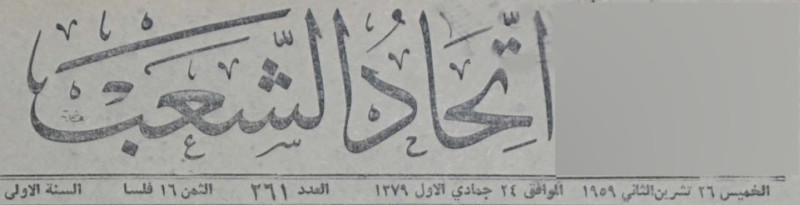 اتحاد الشعب
الخميس ٢٦ تشرين الثاني ١٩٥٩ الموافق ٢٤ جمادي الاول ١٣٧٩ العدد ٢٦١ الثمن ١٦ فلسا السنة الاولى